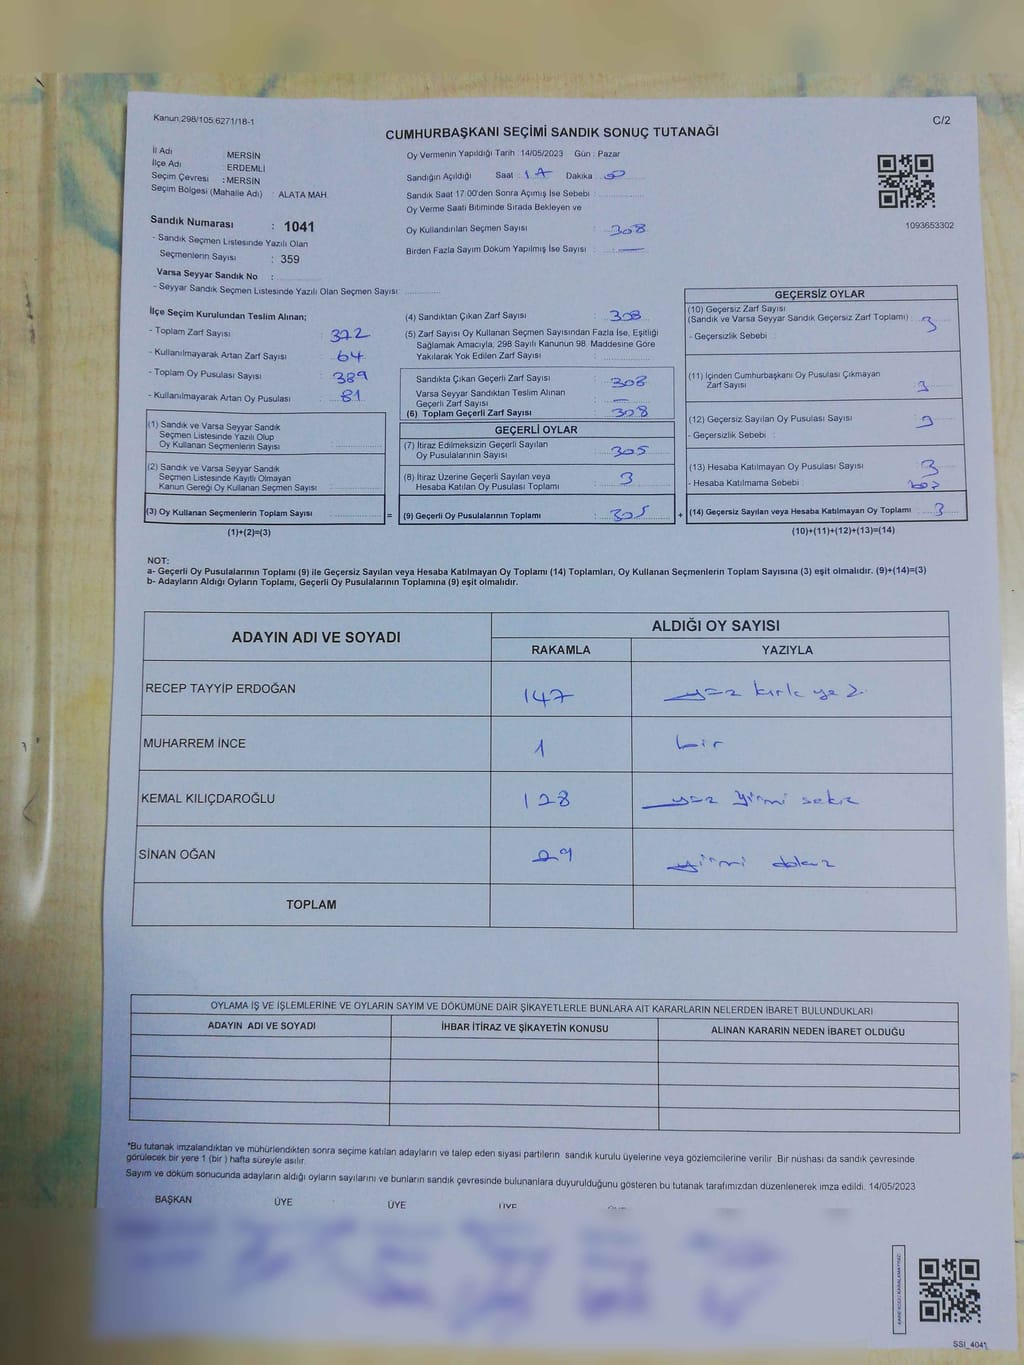 Kanun:298/105:6271/18-1
C/2
CUMHURBAŞKANI SEÇİMİ SANDIK SONUÇ TUTANAĞI
İl Adı : MERSİN
İlçe Adı : ERDEMLİ
Seçim Çevresi : MERSİN
Seçim Bölgesi (Mahalle Adı) : ALATA MAH.
Oy Vermenin Yapıldığı Tarih :14/05/2023 Gün : Pazar
Sandığın Açıldığı Saat : Dakika :
Sandık Saat 17:00'den Sonra Açımış İse Sebebi :
Oy Verme Saati Bitiminde Sırada Bekleyen ve
Oy Kullandırılan Seçmen Sayısı : 308
Birden Fazla Sayım Döküm Yapılmış İse Sayısı : —
1093653302
Sandık Numarası : 1041
- Sandık Seçmen Listesinde Yazılı Olan
Seçmenlerin Sayısı : 359
Varsa Seyyar Sandık No :
- Seyyar Sandık Seçmen Listesinde Yazılı Olan Seçmen Sayısı:
İlçe Seçim Kurulundan Teslim Alınan;
- Toplam Zarf Sayısı : 372
- Kullanılmayarak Artan Zarf Sayısı : 64
- Toplam Oy Pusulası Sayısı : 389
- Kullanılmayarak Artan Oy Pusulası : 81
(1) Sandık ve Varsa Seyyar Sandık
Seçmen Listesinde Yazılı Olup
Oy Kullanan Seçmenlerin Sayısı :
(2) Sandık ve Varsa Seyyar Sandık
Seçmen Listesinde Kayıtlı Olmayan
Kanun Gereği Oy Kullanan Seçmen Sayısı :
(3) Oy Kullanan Seçmenlerin Toplam Sayısı :
=
(1)+(2)=(3)
(4) Sandıktan Çıkan Zarf Sayısı : 308
(5) Zarf Sayısı Oy Kullanan Seçmen Sayısından Fazla İse, Eşitliği
Sağlamak Amacıyla, 298 Sayılı Kanunun 98. Maddesine Göre
Yakılarak Yok Edilen Zarf Sayısı :
Sandıkta Çıkan Geçerli Zarf Sayısı : 308
Varsa Seyyar Sandıktan Teslim Alınan
Geçerli Zarf Sayısı : —
(6) Toplam Geçerli Zarf Sayısı : 308
GEÇERLİ OYLAR
(7) İtiraz Edilmeksizin Geçerli Sayılan
Oy Pusulalarının Sayısı : 305
(8) İtiraz Üzerine Geçerli Sayılan veya
Hesaba Katılan Oy Pusulası Toplamı : 3
(9) Geçerli Oy Pusulalarının Toplamı : 305
+
GEÇERSİZ OYLAR
(10) Geçersiz Zarf Sayısı
(Sandık ve Varsa Seyyar Sandık Geçersiz Zarf Toplamı) : 3
- Geçersizlik Sebebi :
(11) İçinden Cumhurbaşkanı Oy Pusulası Çıkmayan
Zarf Sayısı : 3
(12) Geçersiz Sayılan Oy Pusulası Sayısı : 3
- Geçersizlik Sebebi :
(13) Hesaba Katılmayan Oy Pusulası Sayısı : 3
- Hesaba Katılmama Sebebi :
(14) Geçersiz Sayılan veya Hesaba Katılmayan Oy Toplamı : 3
(10)+(11)+(12)+(13)=(14)
NOT:
a- Geçerli Oy Pusulalarının Toplamı (9) ile Geçersiz Sayılan veya Hesaba Katılmayan Oy Toplamı (14) Toplamları, Oy Kullanan Seçmenlerin Toplam Sayısına (3) eşit olmalıdır. (9)+(14)=(3)
b- Adayların Aldığı Oyların Toplamı, Geçerli Oy Pusulalarının Toplamına (9) eşit olmalıdır.
ADAYIN ADI VE SOYADI
ALDIĞI OY SAYISI
RAKAMLA YAZIYLA
RECEP TAYYİP ERDOĞAN 147 yüz kırk yedi
MUHARREM İNCE 1 bir
KEMAL KILIÇDAROĞLU 128 yüz yirmi sekiz
SİNAN OĞAN 29 yirmi dokuz
TOPLAM
OYLAMA İŞ VE İŞLEMLERİNE VE OYLARIN SAYIM VE DÖKÜMÜNE DAİR ŞİKAYETLERLE BUNLARA AİT KARARLARIN NELERDEN İBARET BULUNDUKLARI
ADAYIN ADI VE SOYADI İHBAR İTİRAZ VE ŞİKAYETİN KONUSU ALINAN KARARIN NEDEN İBARET OLDUĞU
*Bu tutanak imzalandıktan ve mühürlendikten sonra seçime katılan adayların ve talep eden siyasi partilerin sandık kurulu üyelerine veya gözlemcilerine verilir. Bir nüshası da sandık çevresinde
görülecek bir yere 1 (bir ) hafta süreyle asılır.
Sayım ve döküm sonucunda adayların aldığı oyların sayılarını ve bunların sandık çevresinde bulunanlara duyurulduğunu gösteren bu tutanak tarafımızdan düzenlenerek imza edildi. 14/05/2023
BAŞKAN ÜYE ÜYE ÜYE
SSI_4041